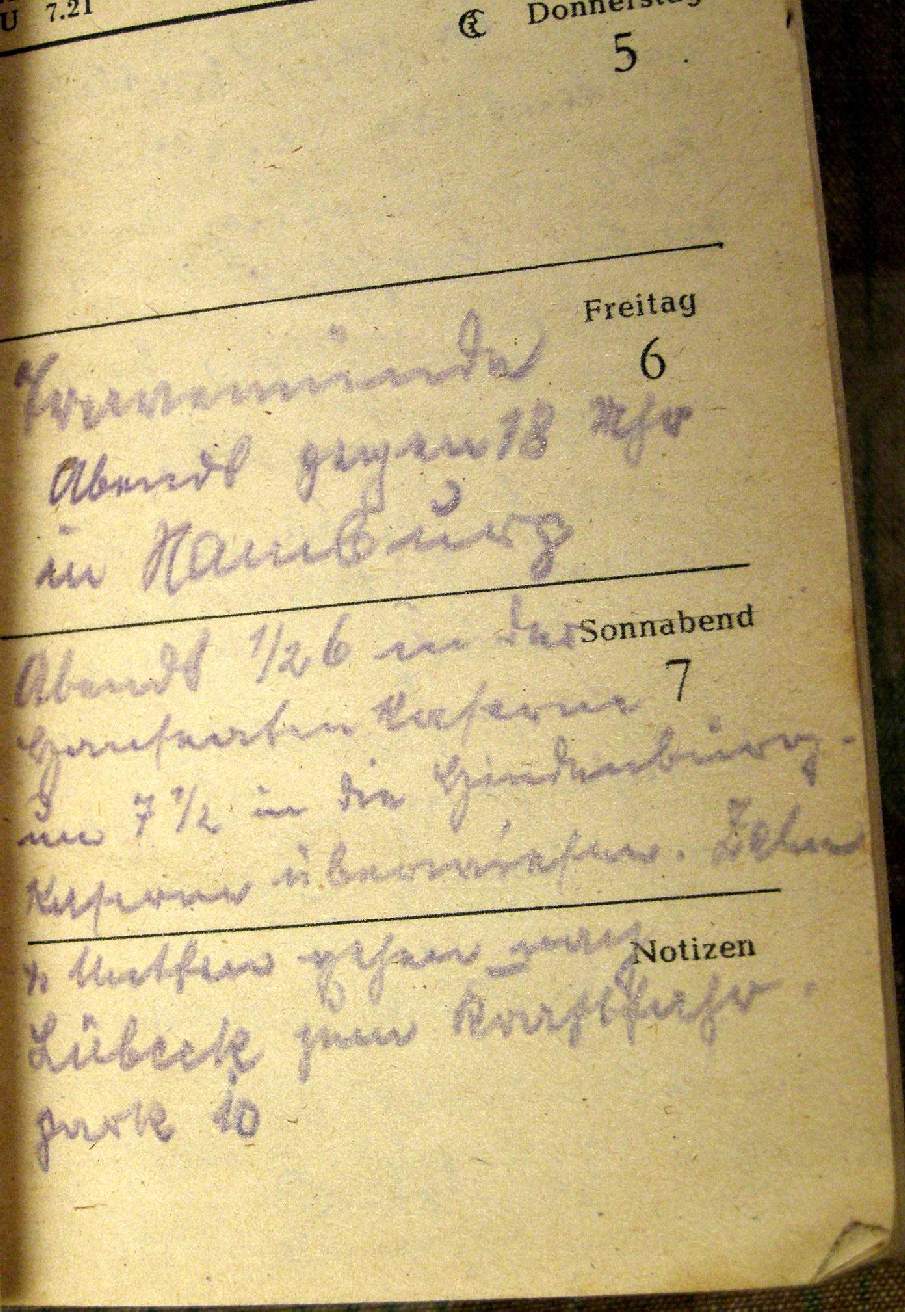 U 7.21
☾ Donnerstag
5
Freitag
6
Travemünde
Abends gegen 18 Uhr
in Hamburg
Sonnabend
7
Abends 1/2 6 in der
Hanseaten Kaserne
um 7 1/2 in die Hindenburg-
Kaserne überwiesen. Zehn
Notizen
gehen nach
Lübeck zum Kraftfahr-
park 10